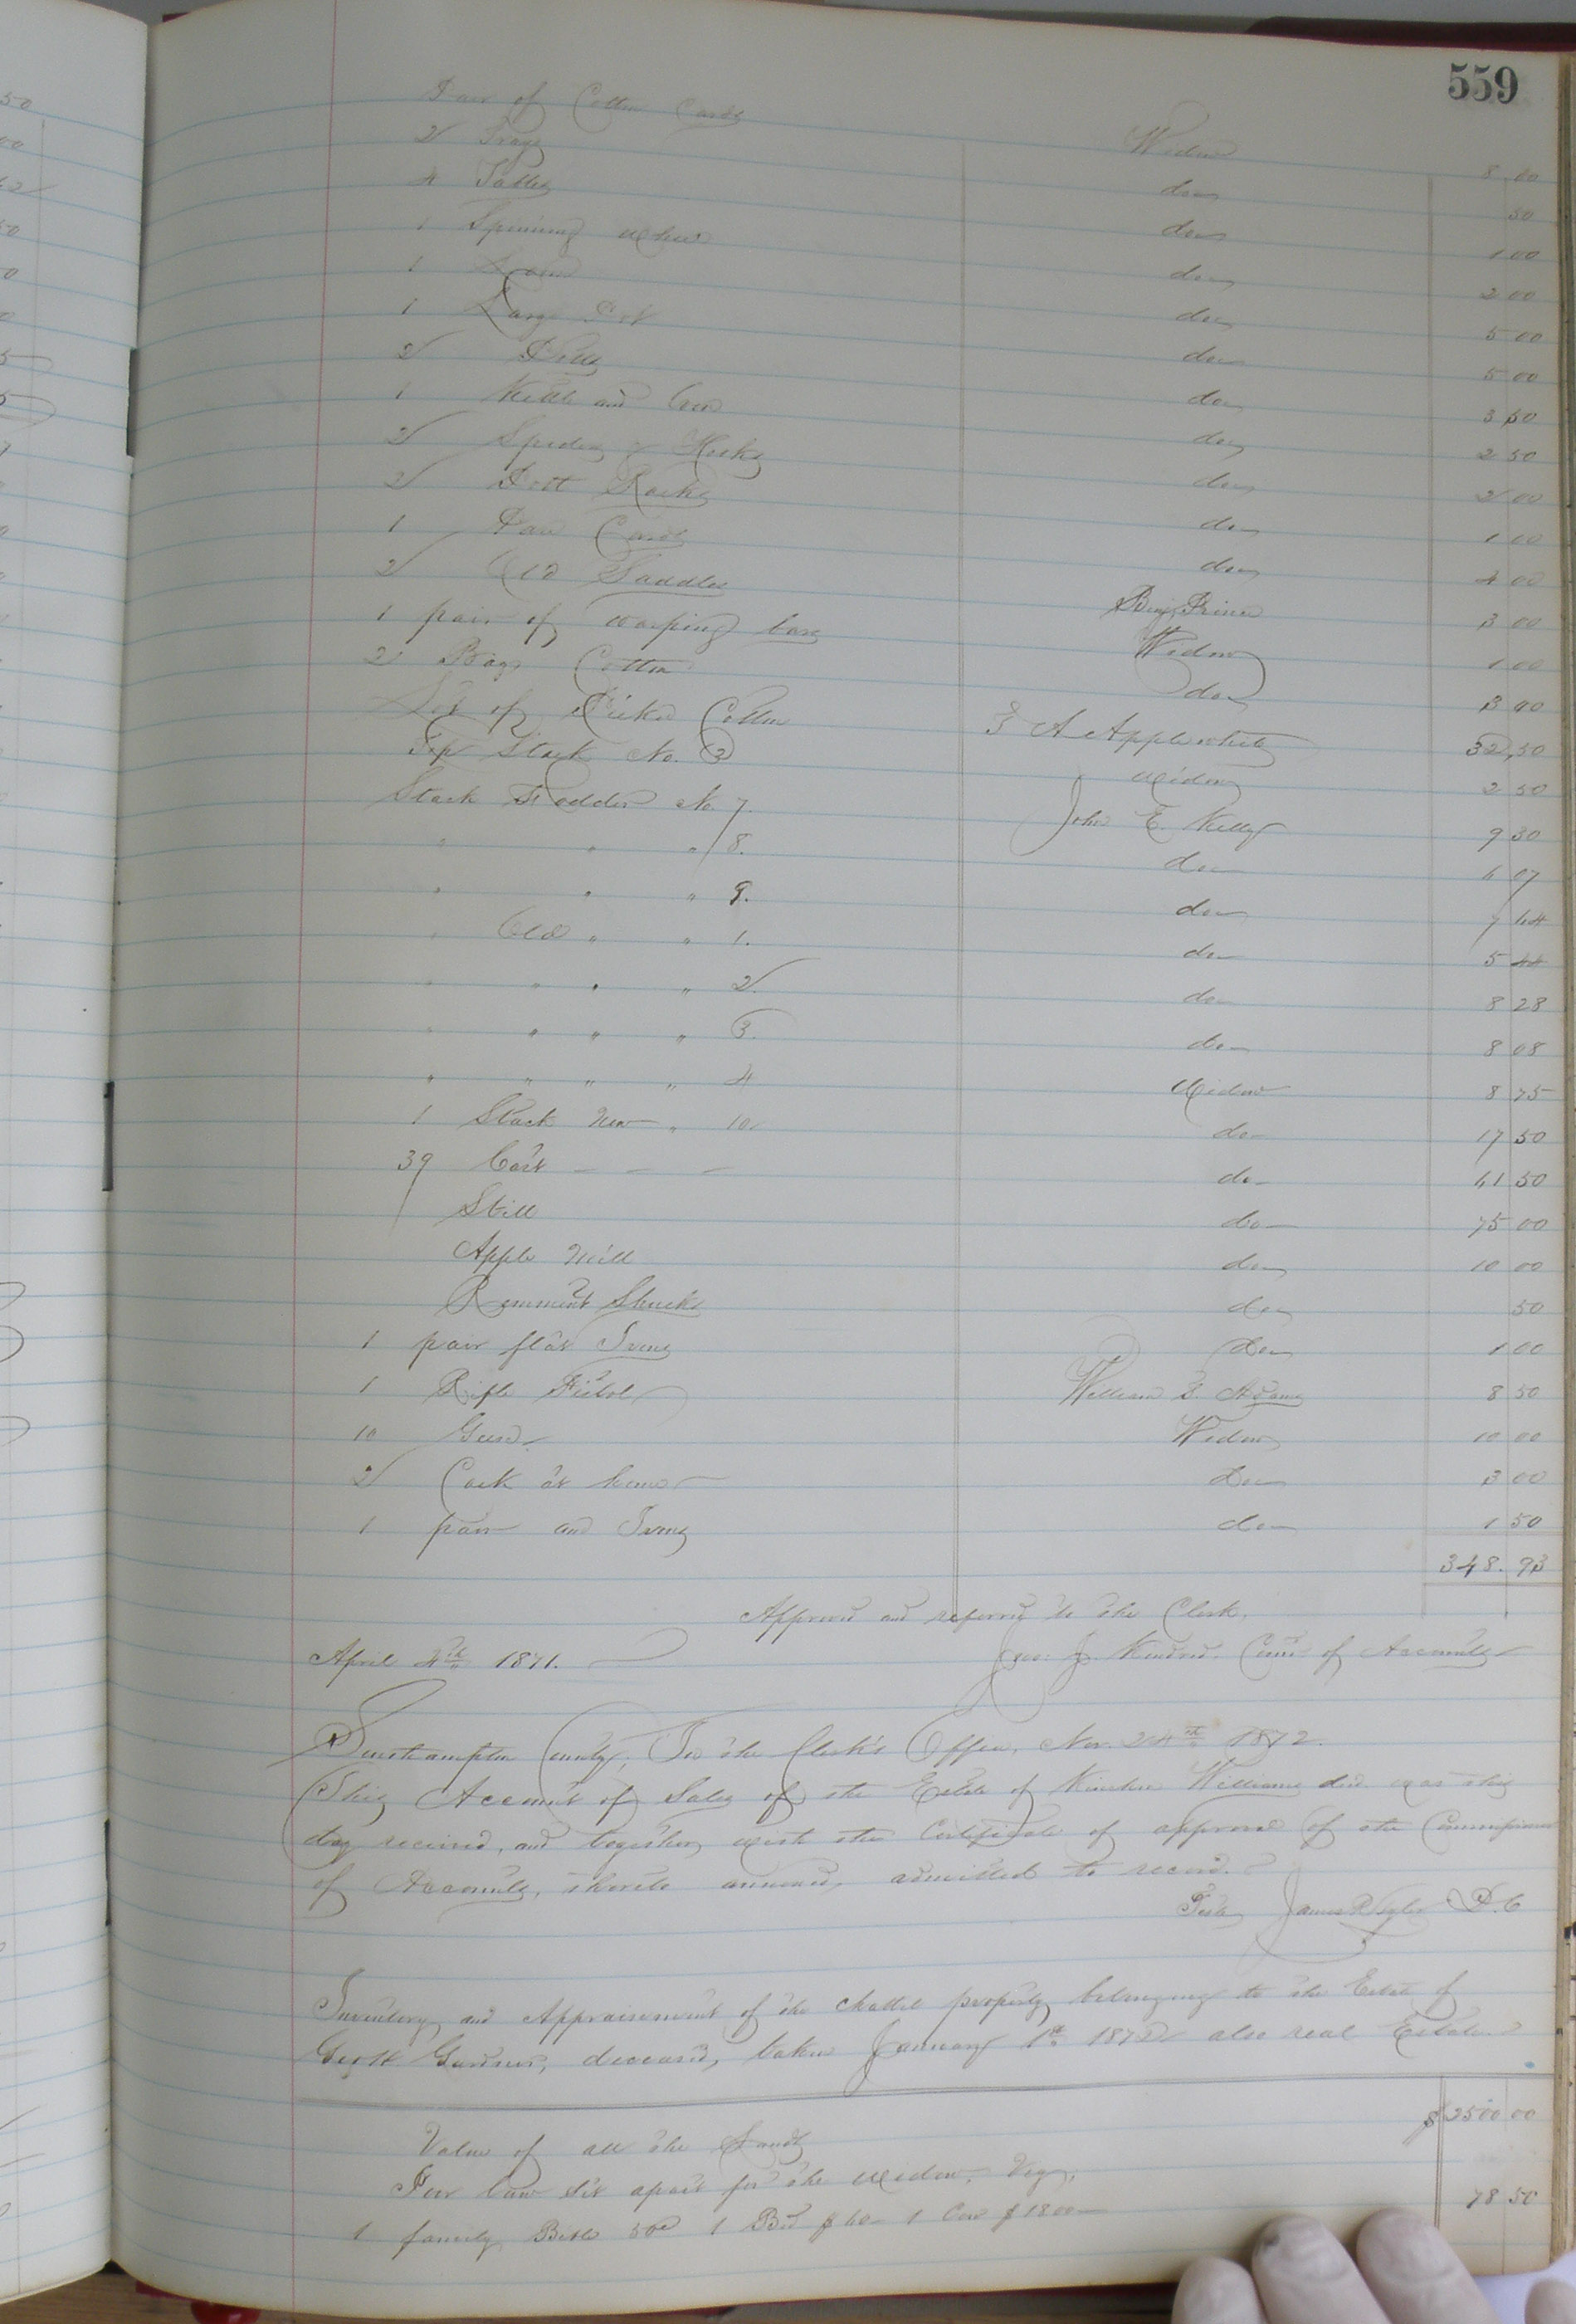 559
Pair of Cotton Cards Widow 8 00
2 Trays do 50
4 Tables do 1 00
1 Spinning Wheel do 2 00
1 Loom do 5 00
1 Large Pot do 5 00
2 do 3 50
1 Kettle and do 2 50
2 Spiders & Hooks do 2 00
2 Pott Racks do 1 00
1 Pair Cards do 4 00
2 Old Saddles Benj Prince 3 00
1 pair of warping bars Widow 1 00
2 Bags Cotton do 3 00
Lot of Picked Cotton A Applewhite 32,50
Top Stack No. 3 Widow 2 50
Stack Fodder No. 7. John E. Kelly 9 30
" " " 8. do 6 07
" " " 9. do 7 64
" Old " " 1. do 5 44
" " " " 2. do 8 28
" " " " 3. do 8 08
" " " " 4 Widow 8 75
1 Stack New " 10 do 17 50
39 do 61 50
Still do 75 00
Apple Mill do 10 00
Remnant Shucks do 50
1 pair flat Irons Do 1 00
1 Rifle Pistol William S. Adams 8 50
10 Geese Widow 10 00
2 at home Do 3 00
1 pair and Irons do 1 50
348. 93
Approved and referred to the Clerk.
April 4th 1871. Jas: J. Kindred. Comr of Accounts
Southampton County, In the Clerk's Office, Nov. 24th 1872.
This Account of Sales of the Estate of Williams decd was this
day received, and together with the Certificate of approval of the Commissioner
of Accounts, thereto annexed, admitted to record.
Teste James D.C
Inventory and Appraisement of the chattel property belonging to the Estate of
Gardner, deceased, taken January 1st 1872 also real Estate.
Value of all the Lands $2500 00
Poor law set apart for the Widow. Viz,
1 family Bible 50c 1 Bed $60 1 Cow $1800 78 50